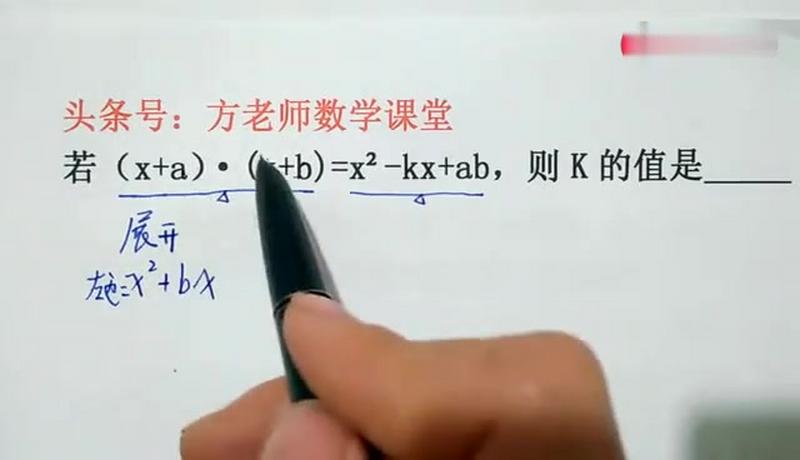 头条号：方老师数学课堂
若（x+a）·(x+b)=x²-kx+ab，则 K 的值是_____
展开
左边=x²+bx